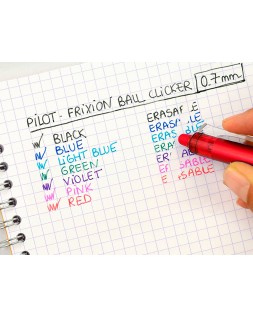 PILOT - FRIXION BALL CLICKER 0.7mm
BLACK
BLUE
LIGHT BLUE
GREEN
VIOLET
PINK
RED
ERASABLE
ERASABLE
ERASABLE
ERASABLE
ERASABLE
ERASABLE
ERASABLE